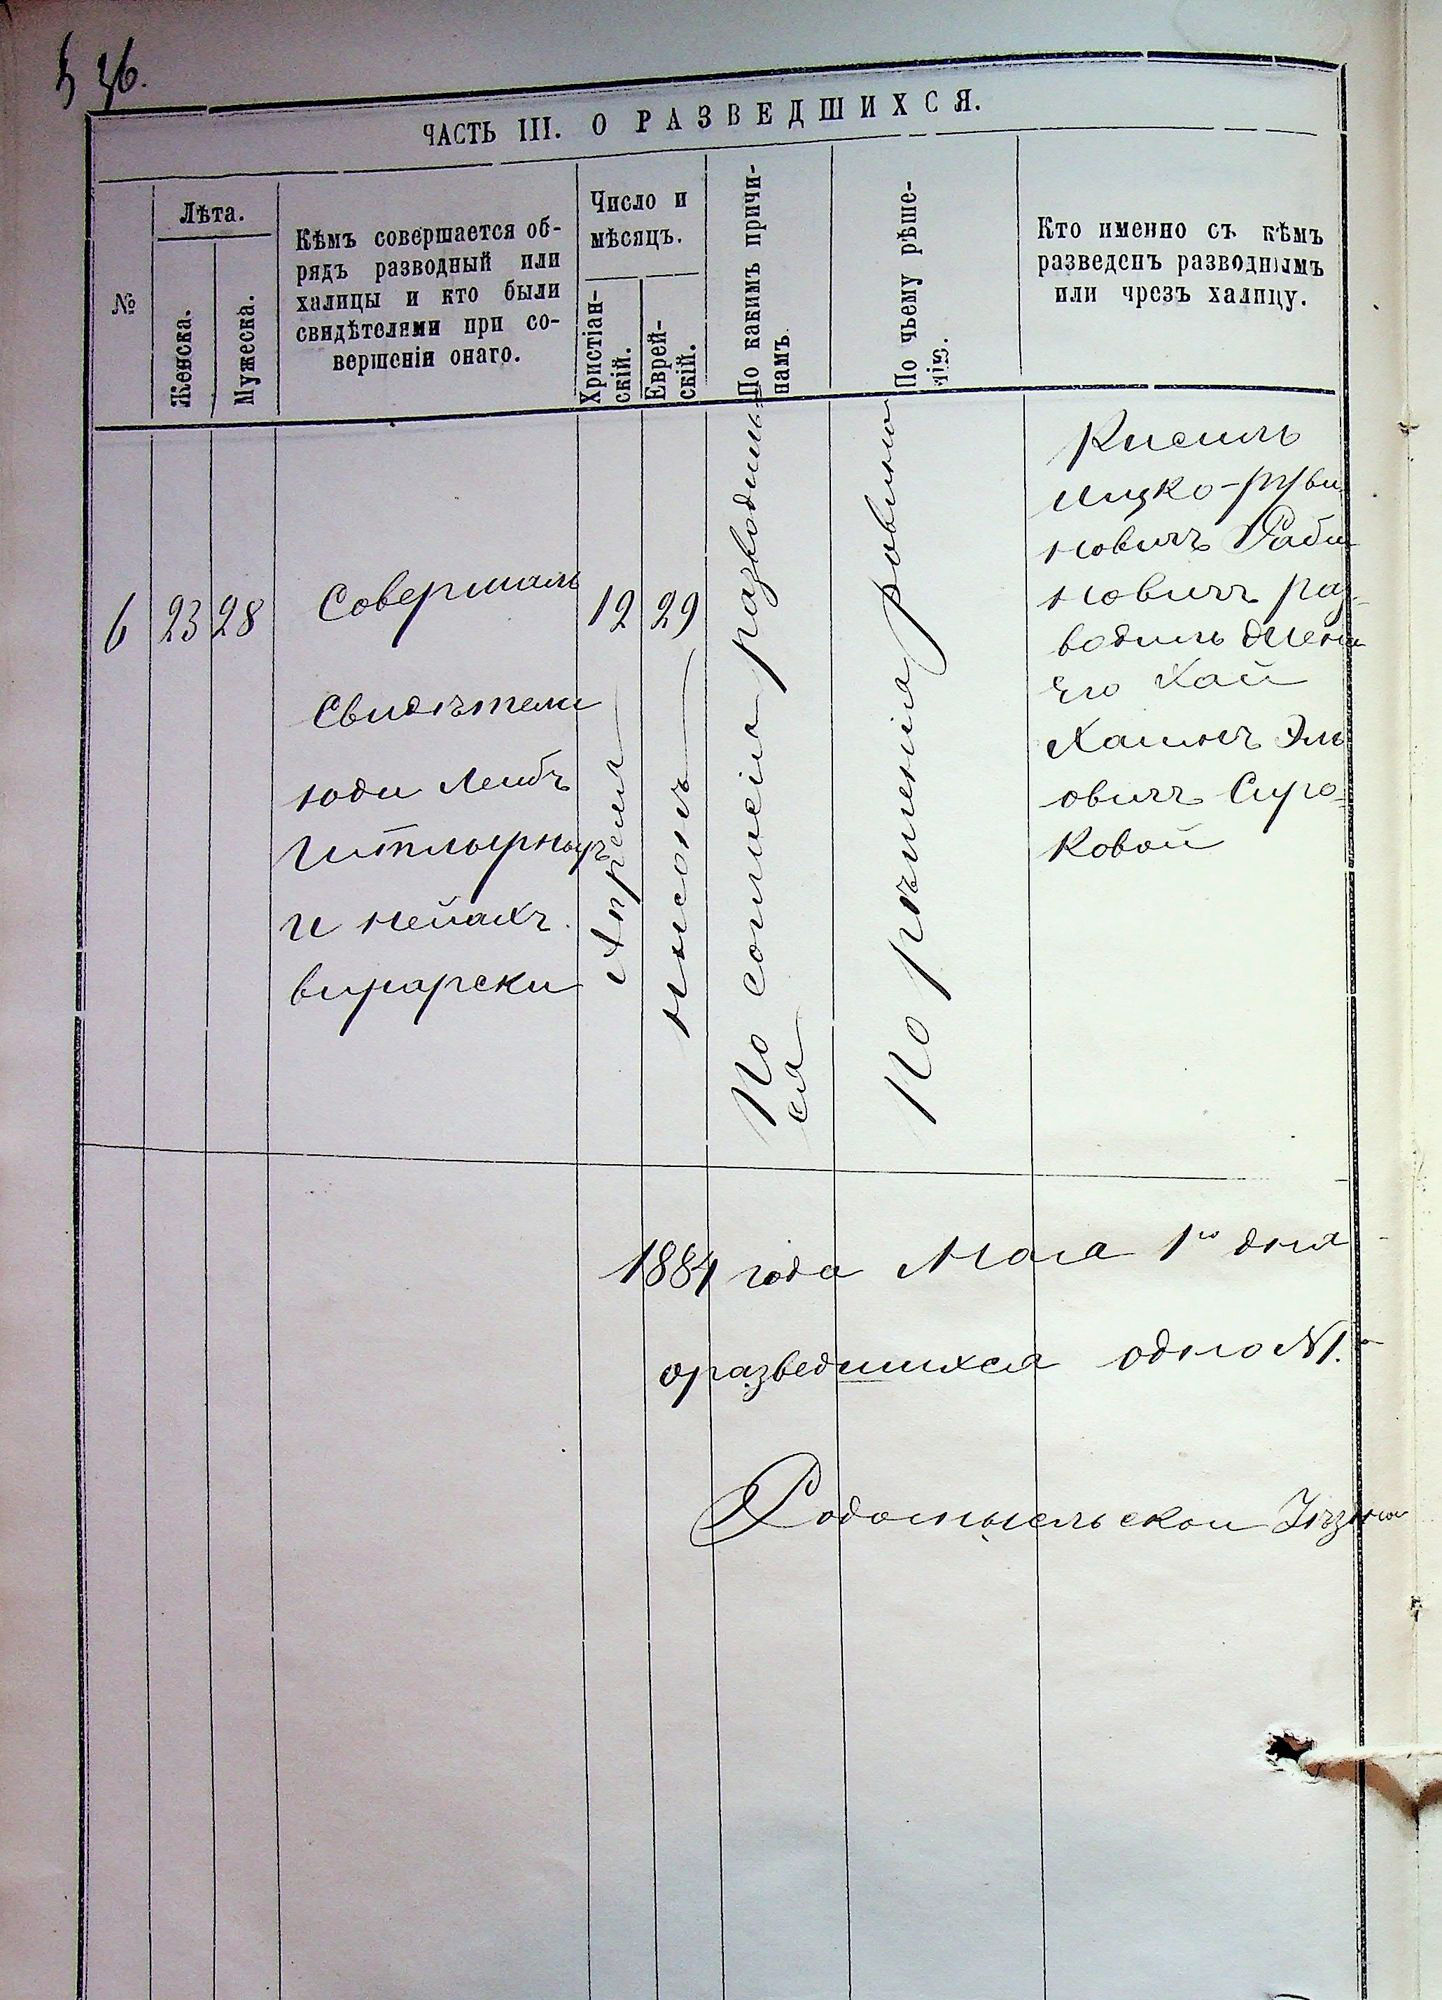 36.
ЧАСТЬ III. О РАЗВЕДШИХСЯ.
№
Лѣта.
Женска.
Мужеска.
Кѣмъ совершается об-
рядъ разводный или
халицы и кто были
свидѣтелями при со-
вершеніи онаго.
Число и
мѣсяцъ.
Христіан-
скій.
Еврей-
скій.
По какимъ причи-
намъ.
По чьему рѣше-
нію.
Кто именно съ кѣмъ
разведенъ разводнымъ
или чрезъ халицу.
6
23
28
Совершалъ
Свидѣтели
юди Лейбъ
и
12
Апреля
29
нисонъ
По согласія разводилъ
ся
По рѣшенія ровиною
Кисиль
Ицко-Руви
новичъ Раби
новичъ раз-
водилъ жены
Его Хаи
Хаимъ Эль
овичъ Сиро-
Ковой
1884 года Мая 1го дня
оразведшихся одно №1.
Радомысльской Уѣзной